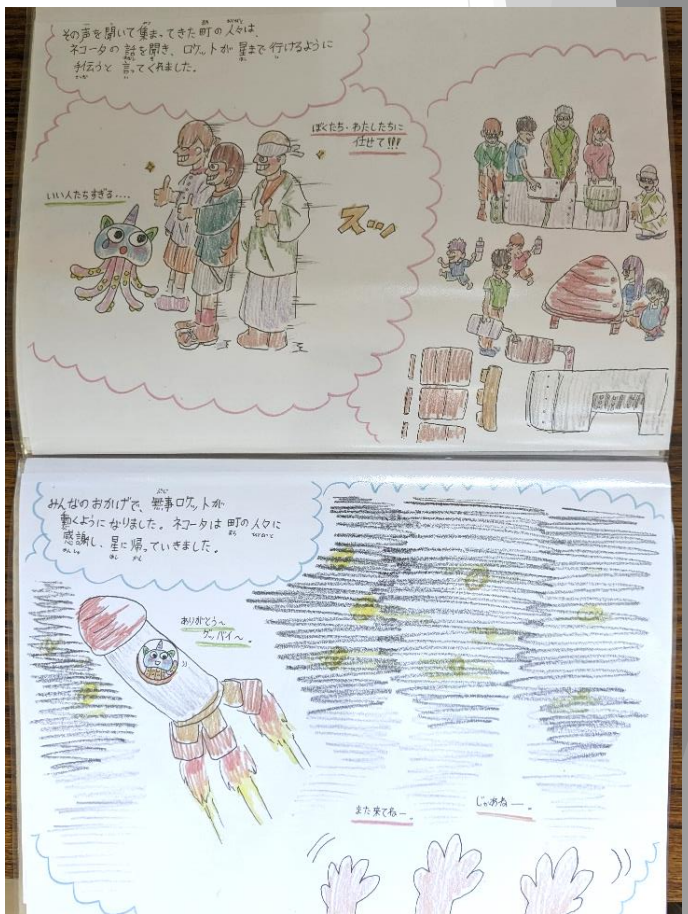 その声を聞いて集まってきた町の人々は、
ネコータの話を聞き、ロケットが星まで行けるように
手伝うと言ってくれました。
ぼくたち・わたしたちに
任せて!!!
いい人たちすぎる....
スッ
みんなのおかげで、無事ロケットが
動くようになりました。ネコータは町の人々に
感謝し、星に帰っていきました。
ありがとう〜
グッバイ〜。
また来てねー。
じゃあねー。